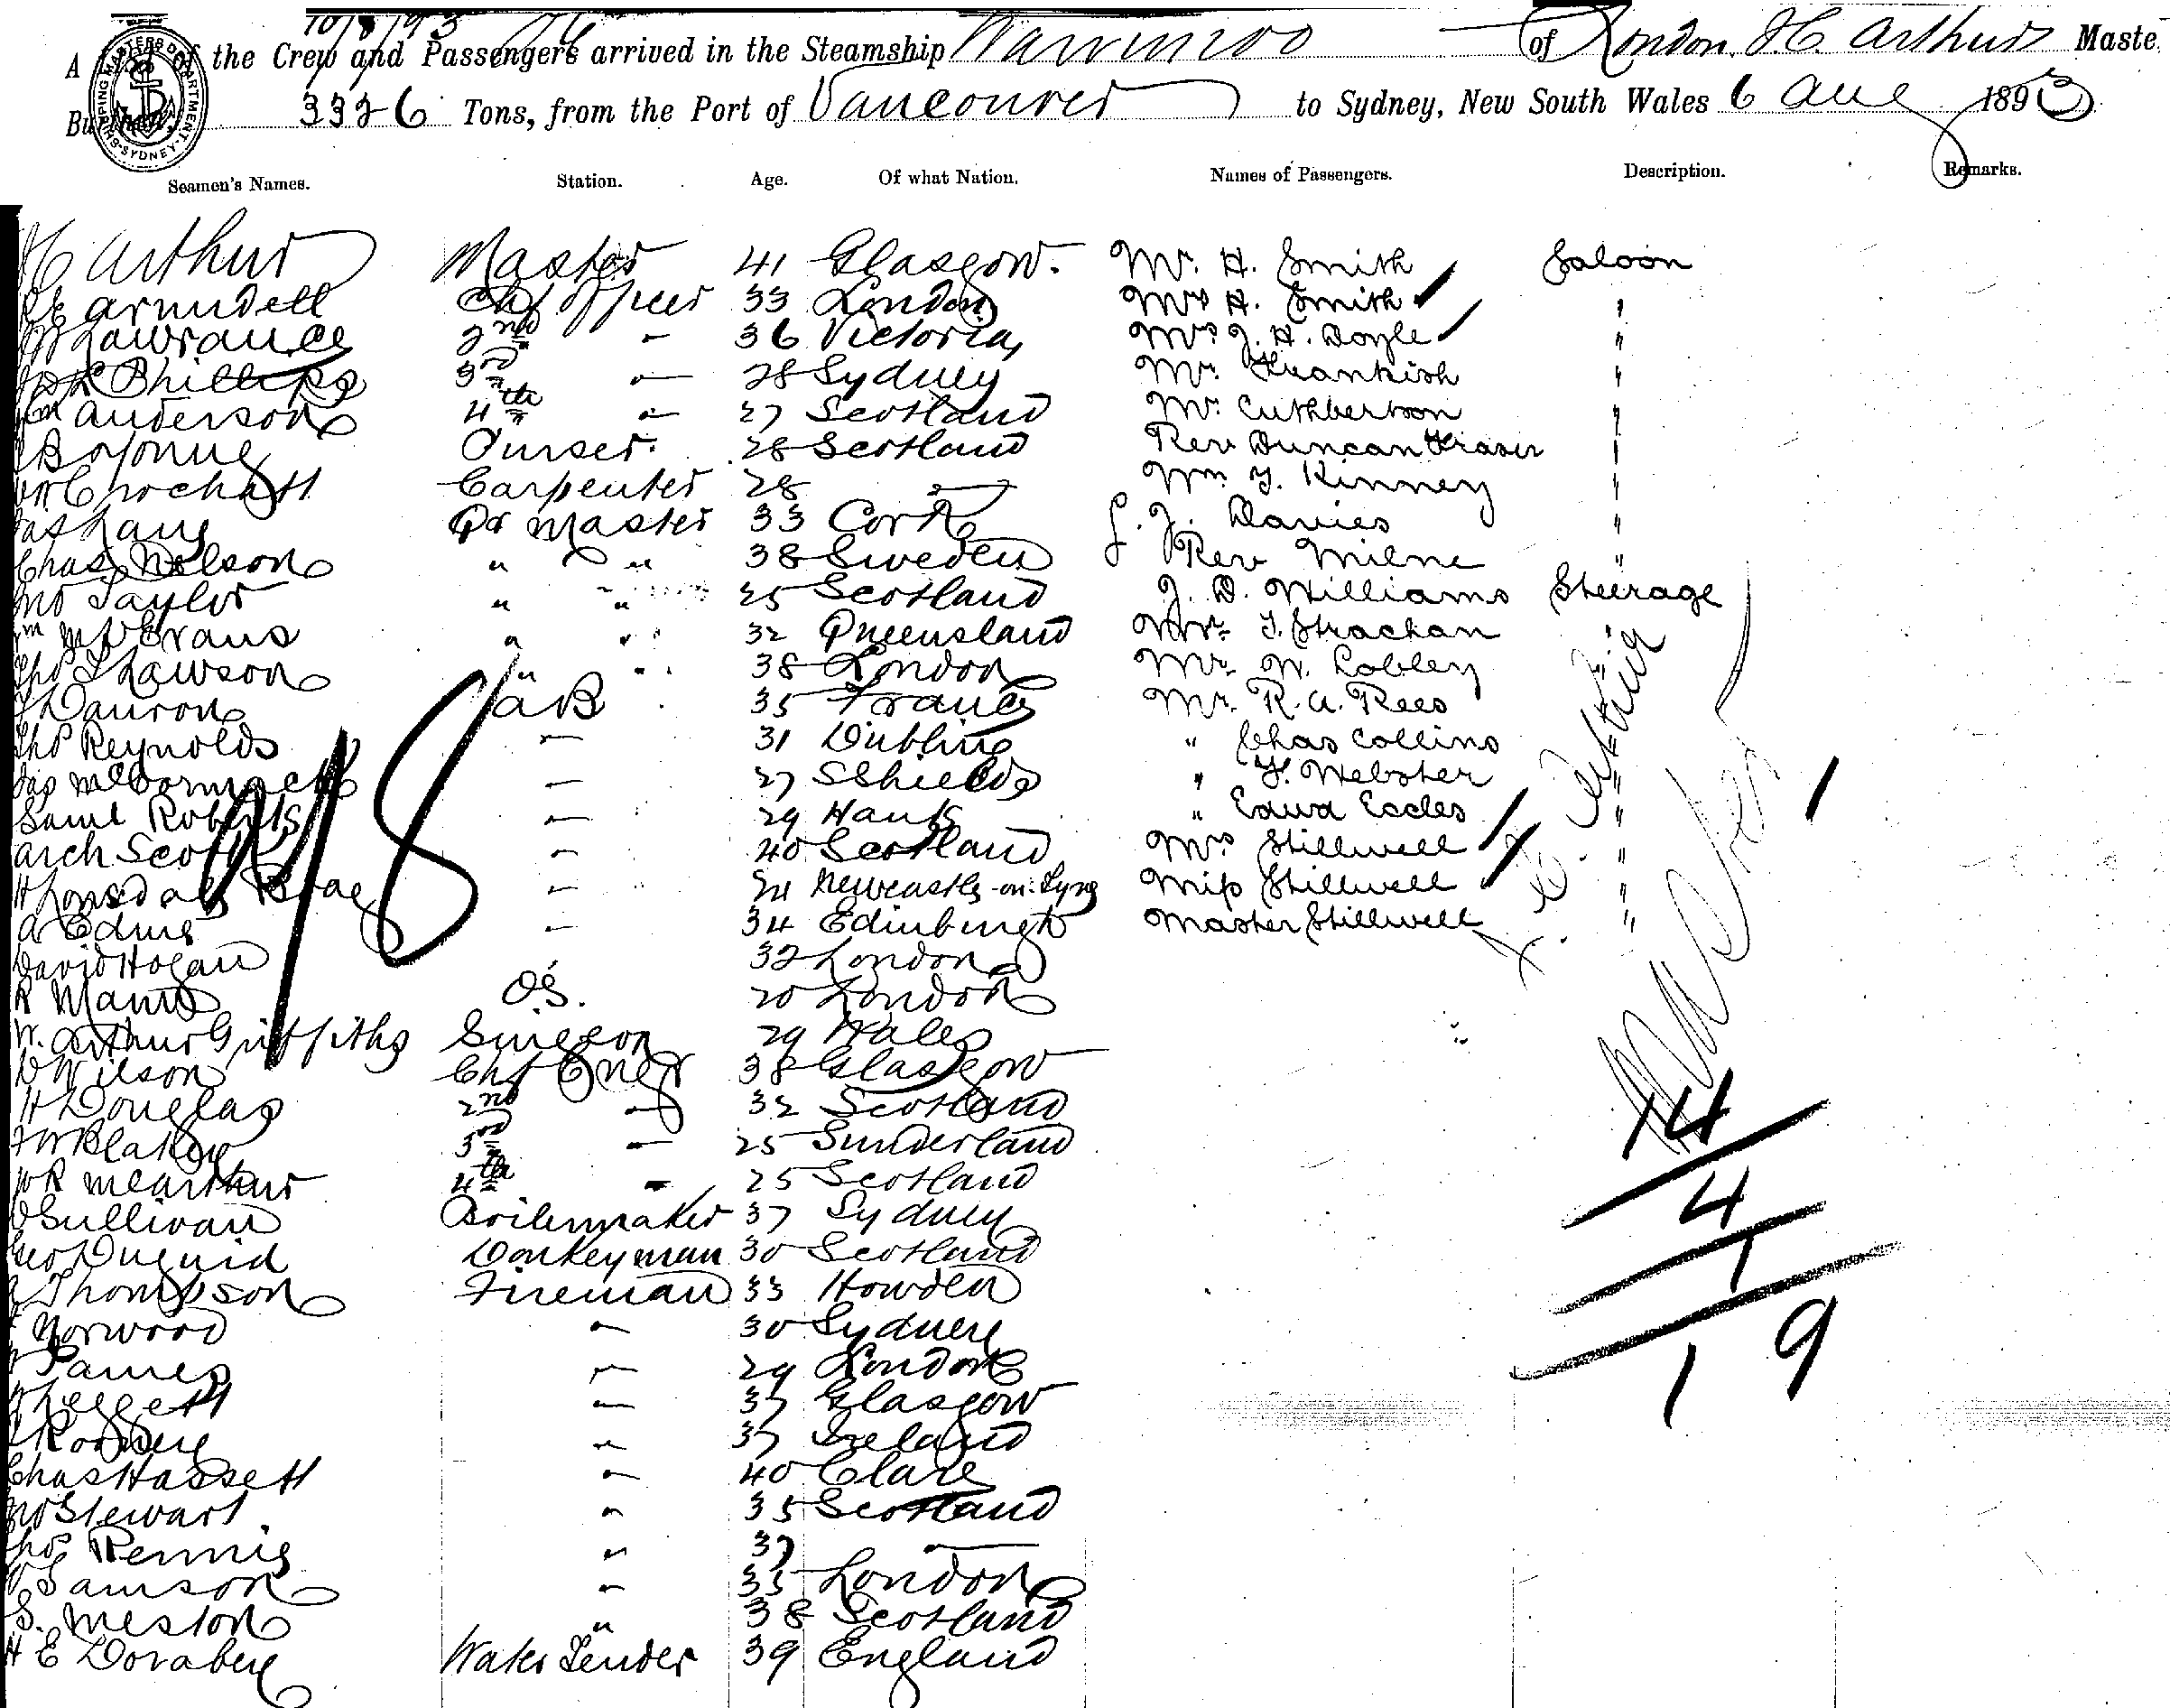 10/8/93
A List of the Crew and Passengers arrived in the Steamship Warrimoo of London, J.C. Arthur Maste
Burthen 3326 Tons, from the Port of Vancouver to Sydney, New South Wales 6 Aug 1893
SHIPPING MASTERS DEPARTMENT SYDNEY
Seamen's Names. Station. Age. Of what Nation. Names of Passengers. Description. Remarks.
Arthur Master 41 Glasgow. Mr. H. Smith Saloon
Arundell Chf Officer 33 London Mrs H. Smith "
Lawrance 2nd " 36 Victoria Mrs J. H. Doyle "
Phillips 3rd " 28 Sydney Mr. Frankish "
Anderson 4th " 27 Scotland Mr. Cuthbertson "
Purser 28 Scotland Rev Duncan Fraser "
Carpenter 28 " Wm. Y. Kinney "
Jas Lang Qr Master 33 Cork Davies "
Chas Nelson " " 38 Sweden Rev Milne "
Jno Taylor " " 25 Scotland J. D. Williams Steerage
Evans " " 32 Queensland Mr. J. Strachan "
Tho Lawson " " 38 London Mr. W. Lobley "
AB 35 France Mr. R. A. Rees "
Tho Reynolds " 31 Dublin " Chas Collins "
Jas McCormack " 27 SShields " Webster "
Saml Roberts " 29 Hants " Edwd Eccles "
Arch Scott " 40 Scotland Mrs Stillwell "
H Lonsdale " 24 Newcastle-on-Tyne Miss Stillwell "
" 34 Edinburgh Master Stillwell "
David Hogan 32 London
R Mann OS. 20 London
W. Arthur Griffiths Surgeon 29 Wales
D Wilson Chf Engr 38 Glasgow
H Douglas 2nd " 32 Scotland
Blakey 3rd " 25 Sunderland
W R McArthur 4th " 25 Scotland
Sullivan Boilermaker 37 Sydney
Geo Duguid Donkeyman 30 Scotland
Thompson Fireman 33 Howden
Norwood " 30 Sydney
James " 29 London
Leggett " 37 Glasgow
Rooney " 37 Ireland
Chas Hassett " 40 Clare
Jno Stewart " 35 Scotland
Tho Rennie " 37 "
Samson " 35 London
S. Meston " 38 Scotland
H E Water Tender 39 England
98
14
4
1
19